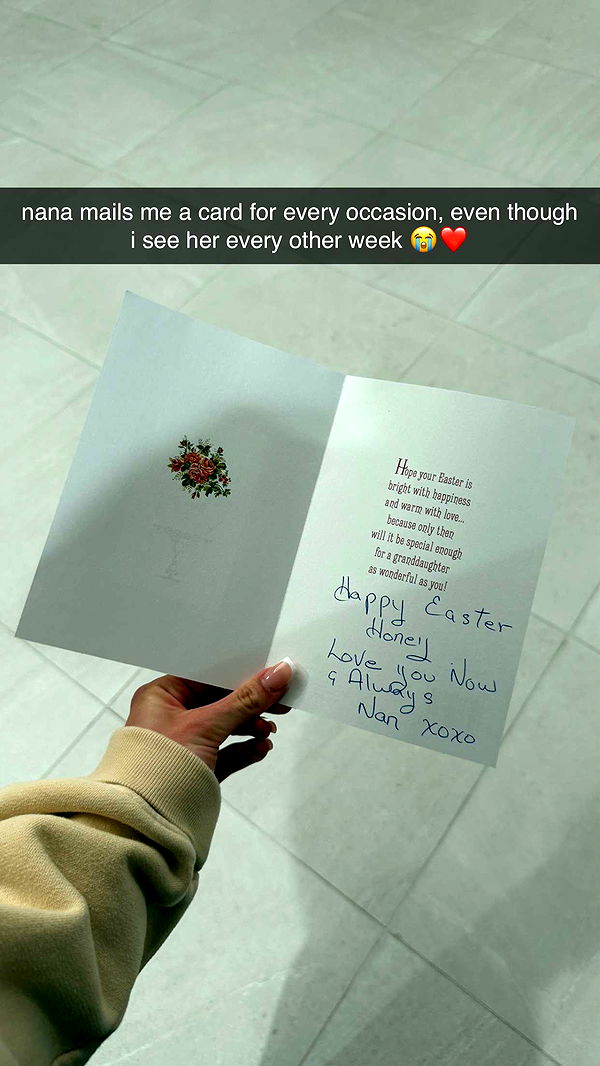 nana mails me a card for every occasion, even though
i see her every other week 😭❤️
Hope your Easter is
bright with happiness
and warm with love...
because only then
will it be special enough
for a granddaughter
as wonderful as you!
Happy Easter
Honey
Love you Now
& Always
Nan xoxo